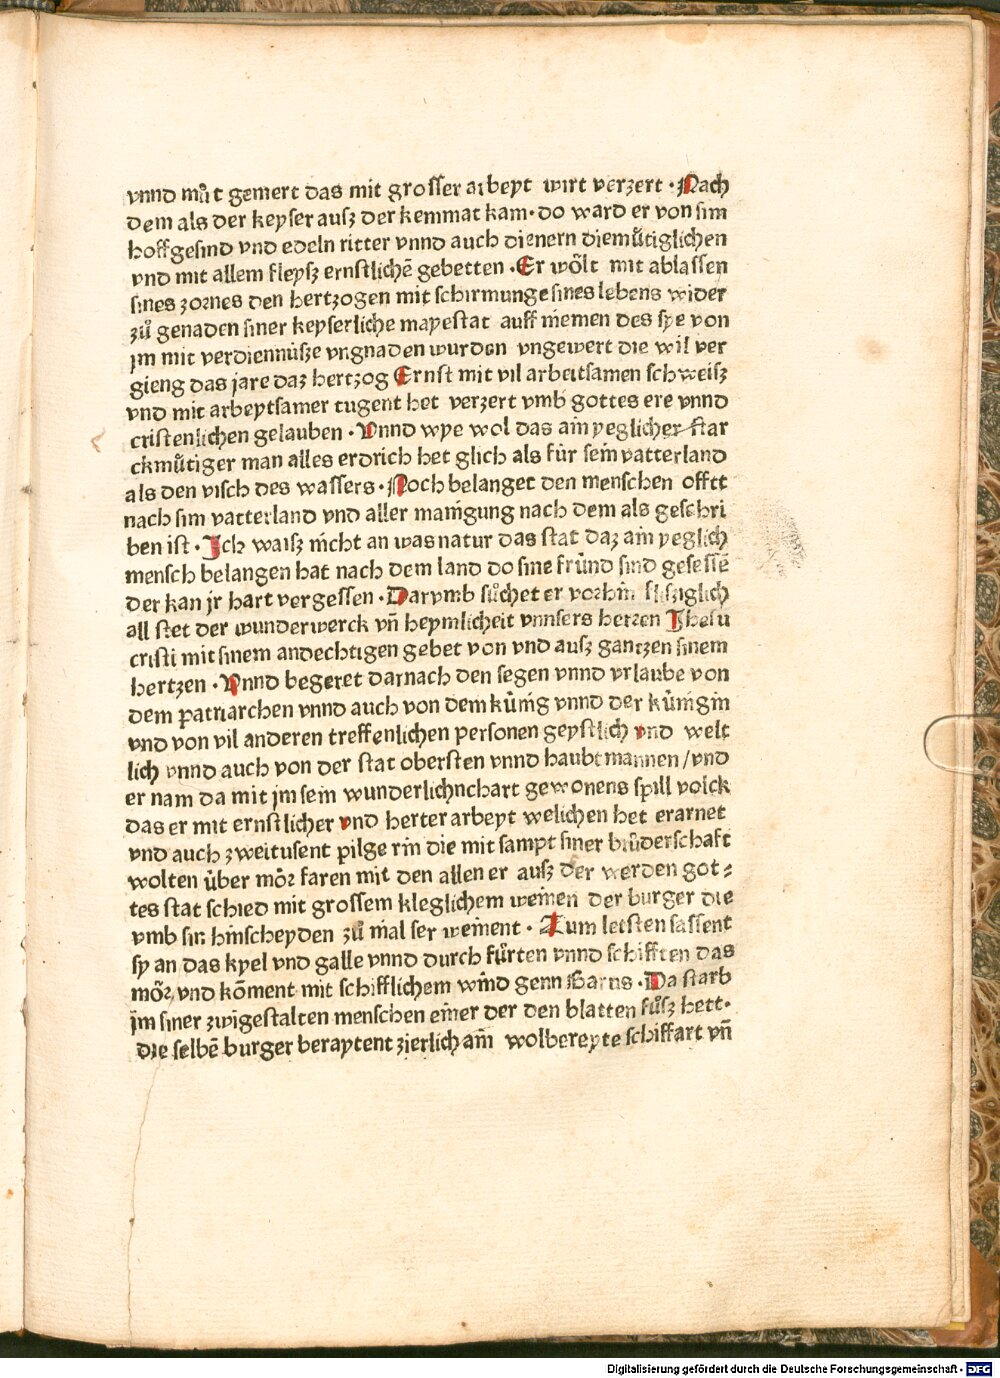 vnnd můt gemert das mit grosser arbeyt wirt verzert · Nach
dem als der keyser ausz der kemmat kam · do ward er von sim
hoffgesind vnd edeln ritter vnnd auch dienern diemůtiglichen
vnd mit allem fleysz ernstlichē gebetten · Er wölt mit ablassen
sines zornes den hertzogen mit schirmunge sines lebens wider
zů genaden siner keyserliche mayestat auff niemen des sye von
jm mit verdiennüsze vngnaden wurden vngewert die wil ver
gieng das jare daz hertzog Ernst mit vil arbeitsamen schweisz
vnd mit arbeytsamer tugent het verzert vmb gottes ere vnnd
cristenlichen gelauben · Vnnd wye wol das ain yeglicher star
ckmůtiger man alles erdrich het glich als für sein vatterland
als den visch des wassers · Noch belanget den menschen offtt
nach sim vatterland vnd aller mainigung nach dem als geschri
ben ist · Ich waisz nicht an was natur das stat daz ain yeglich
mensch belangen hat nach dem land do sine fründ sind gesessē
der kan jr hart vergessen · Darvmb sůchet er vorhin fliszglich
all stet der wunderwerck vn̄ heymlicheit vnnsers herren Jhesu
cristi mit sinem andechtigen gebet von vnd ausz gantzen sinem
hertzen · Vnnd begeret darnach den segen vnnd vrlaube von
dem patriarchen vnnd auch von dem künig vnnd der künigin
vnd von vil anderen treffenlichen personen geystlich vnd welt
lich vnnd auch von der stat obersten vnnd haubtmannen / vnd
er nam da mit jm sein wunderlichnchart gewonens spill volck
das er mit ernstlicher vnd herter arbeyt welichen het erarnet
vnd auch zweitusent pilgerin die mit sampt siner brůderschaft
wolten über mör faren mit den allen er ausz der werden got⸗
tes stat schied mit grossem kleglichem weinen der burger die
vmb sin hinscheyden zů mal ser weinent · Zum letsten sassent
sy an das kyel vnd galle vnnd durch fürten vnnd schifften das
mör vnd kōment mit schifflichem wind genn Barus · Da starb
jm siner zwigestalten menschen einer der den blatten fůsz hett ·
die selbē burger beraytent zierlich ain wolbereyte schiffart vn̄
Digitalisierung gefördert durch die Deutsche Forschungsgemeinschaft - DFG